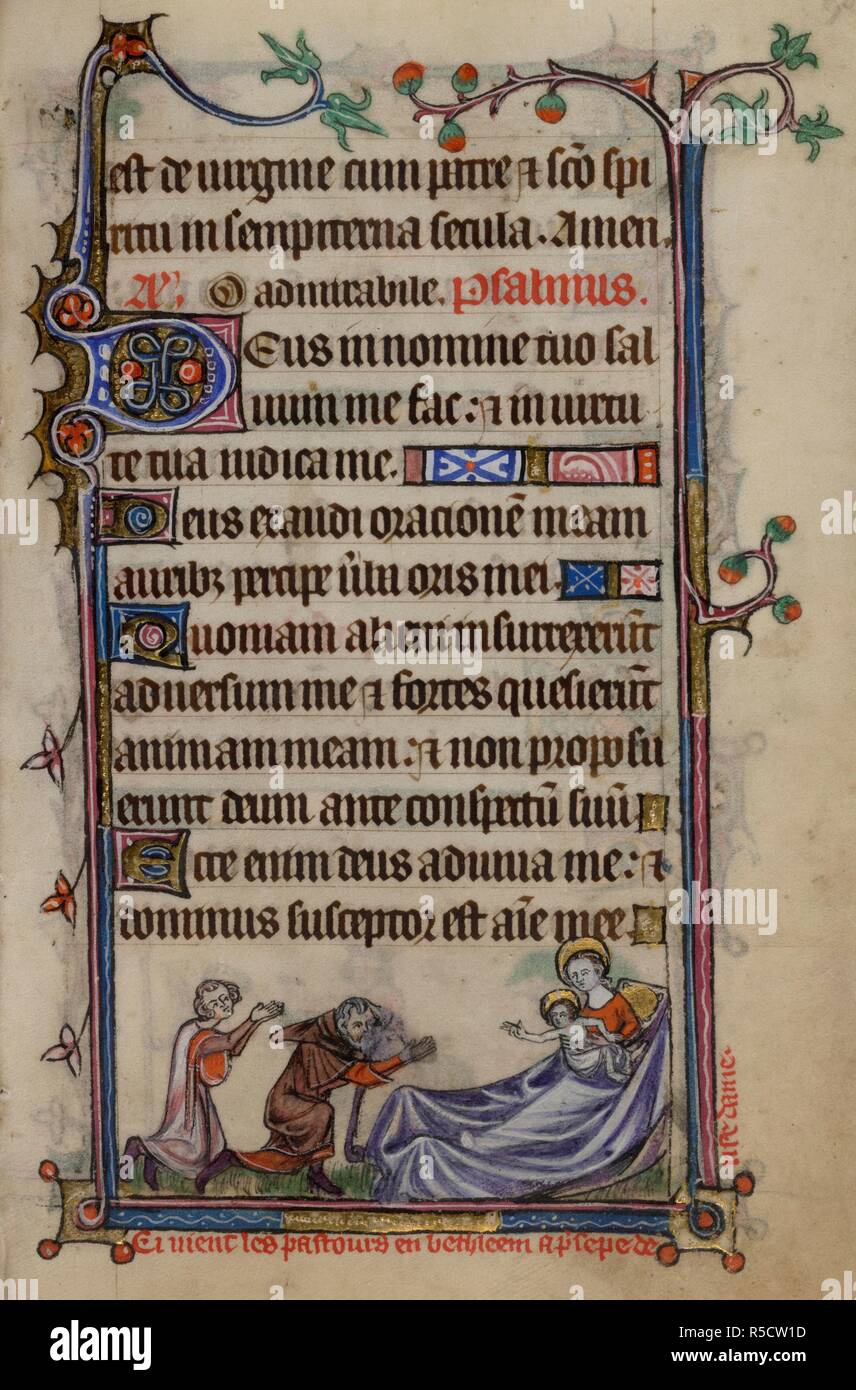 est de uirgine cum patre ⁊ sc̄o spi
ritu in sempiterna secula. Amen.
A͞. O admirabile. Psalmus.
Deus in nomine tuo sal
uum me fac: ⁊ in uirtu
te tua iudica me.
Deus exaudi orationē meam
aurib; percipe ūba oris mei.
Quoniam alieni insurrexerūt
aduersum me ⁊ fortes quesierūt
animam meam: ⁊ non proposu
erunt deum ante conspectū suū
Ecce enim deus adiuua me: ⁊
dominus susceptor est aīe mee
Ci uient les pastours en bethleem a p̄sepe de
dame.
alamy
alamy
Image ID: R5CW1D
www.alamy.com